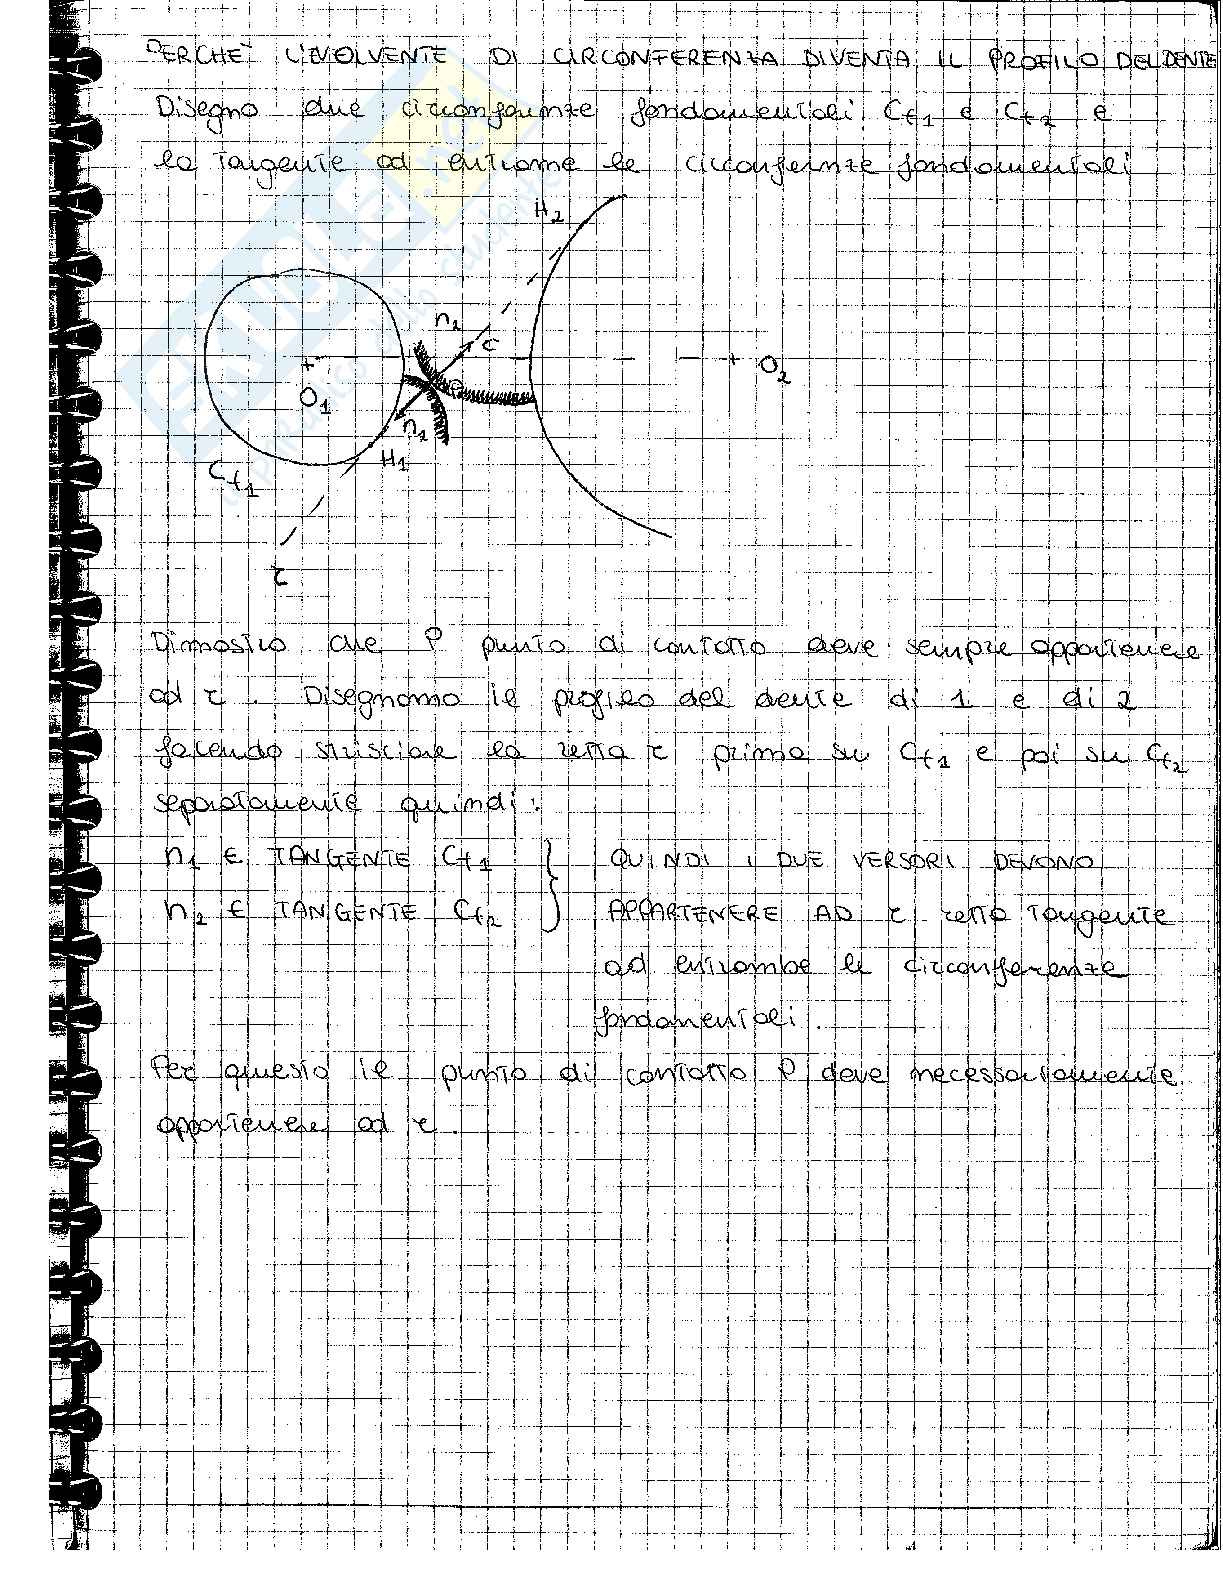 PERCHE' L'EVOLVENTE DI CIRCONFERENZA DIVENTA IL PROFILO DEL DENTE
Disegno due circonferenze fondamentali Cf1 e Cf2 e
la tangente ad entrambe le circonferenze fondamentali
H2
n2
C
P
O2
O1
n1
H1
Cf1
τ
Dimostro che P punto di contatto deve sempre appartenere
ad τ. Disegnamo il profilo del dente di 1 e di 2
facendo strisciare la retta τ prima su Cf1 e poi su Cf2
separatamente quindi:
n1 E TANGENTE Cf1 } QUINDI I DUE VERSORI DEVONO
n2 E TANGENTE Cf2 APPARTENERE AD τ retta tangente
ad entrambe le circonferenze
fondamentali.
Per questo il punto di contatto P deve necessariamente
appartenere ad τ.